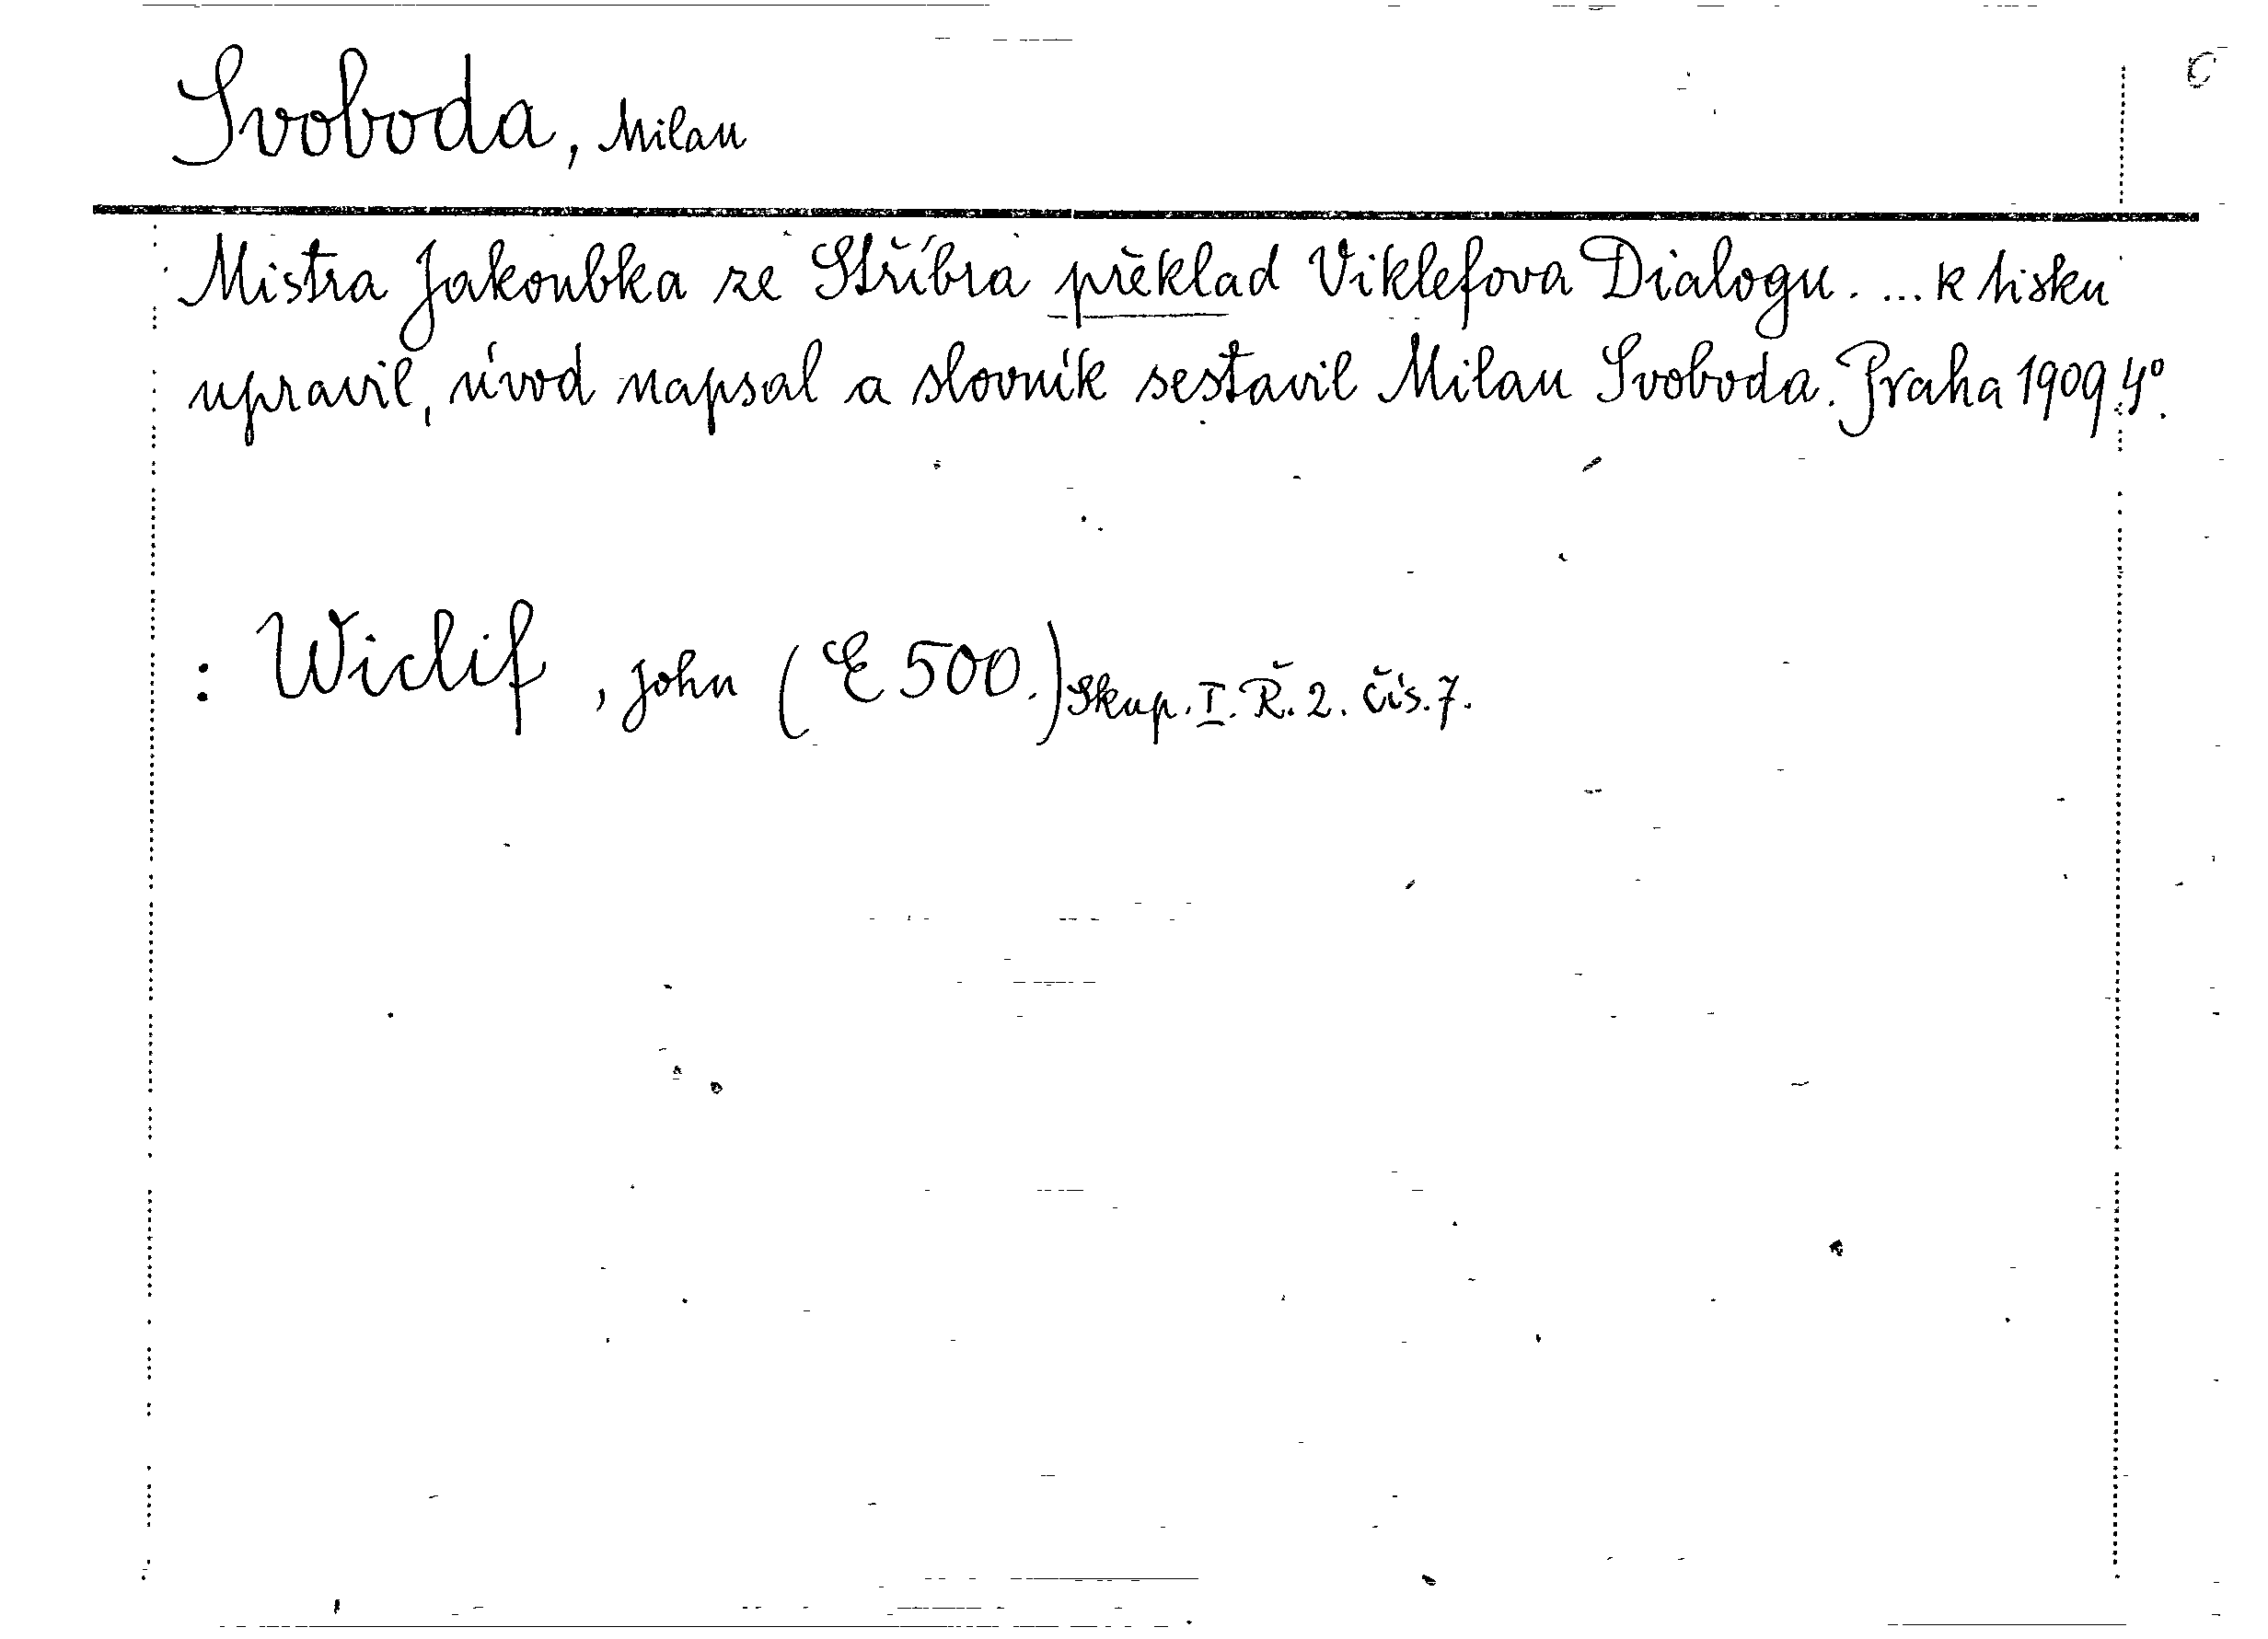 Svoboda, Milan
Mistra Jakoubka ze Stříbra překlad Viklefova Dialogu. ... k tisku
upravil, úvod napsal a slovník sestavil Milan Svoboda. Praha 1909. 4°.
: Wiclif, John (E 500.) Skup. I. Ř. 2. čís. 7.